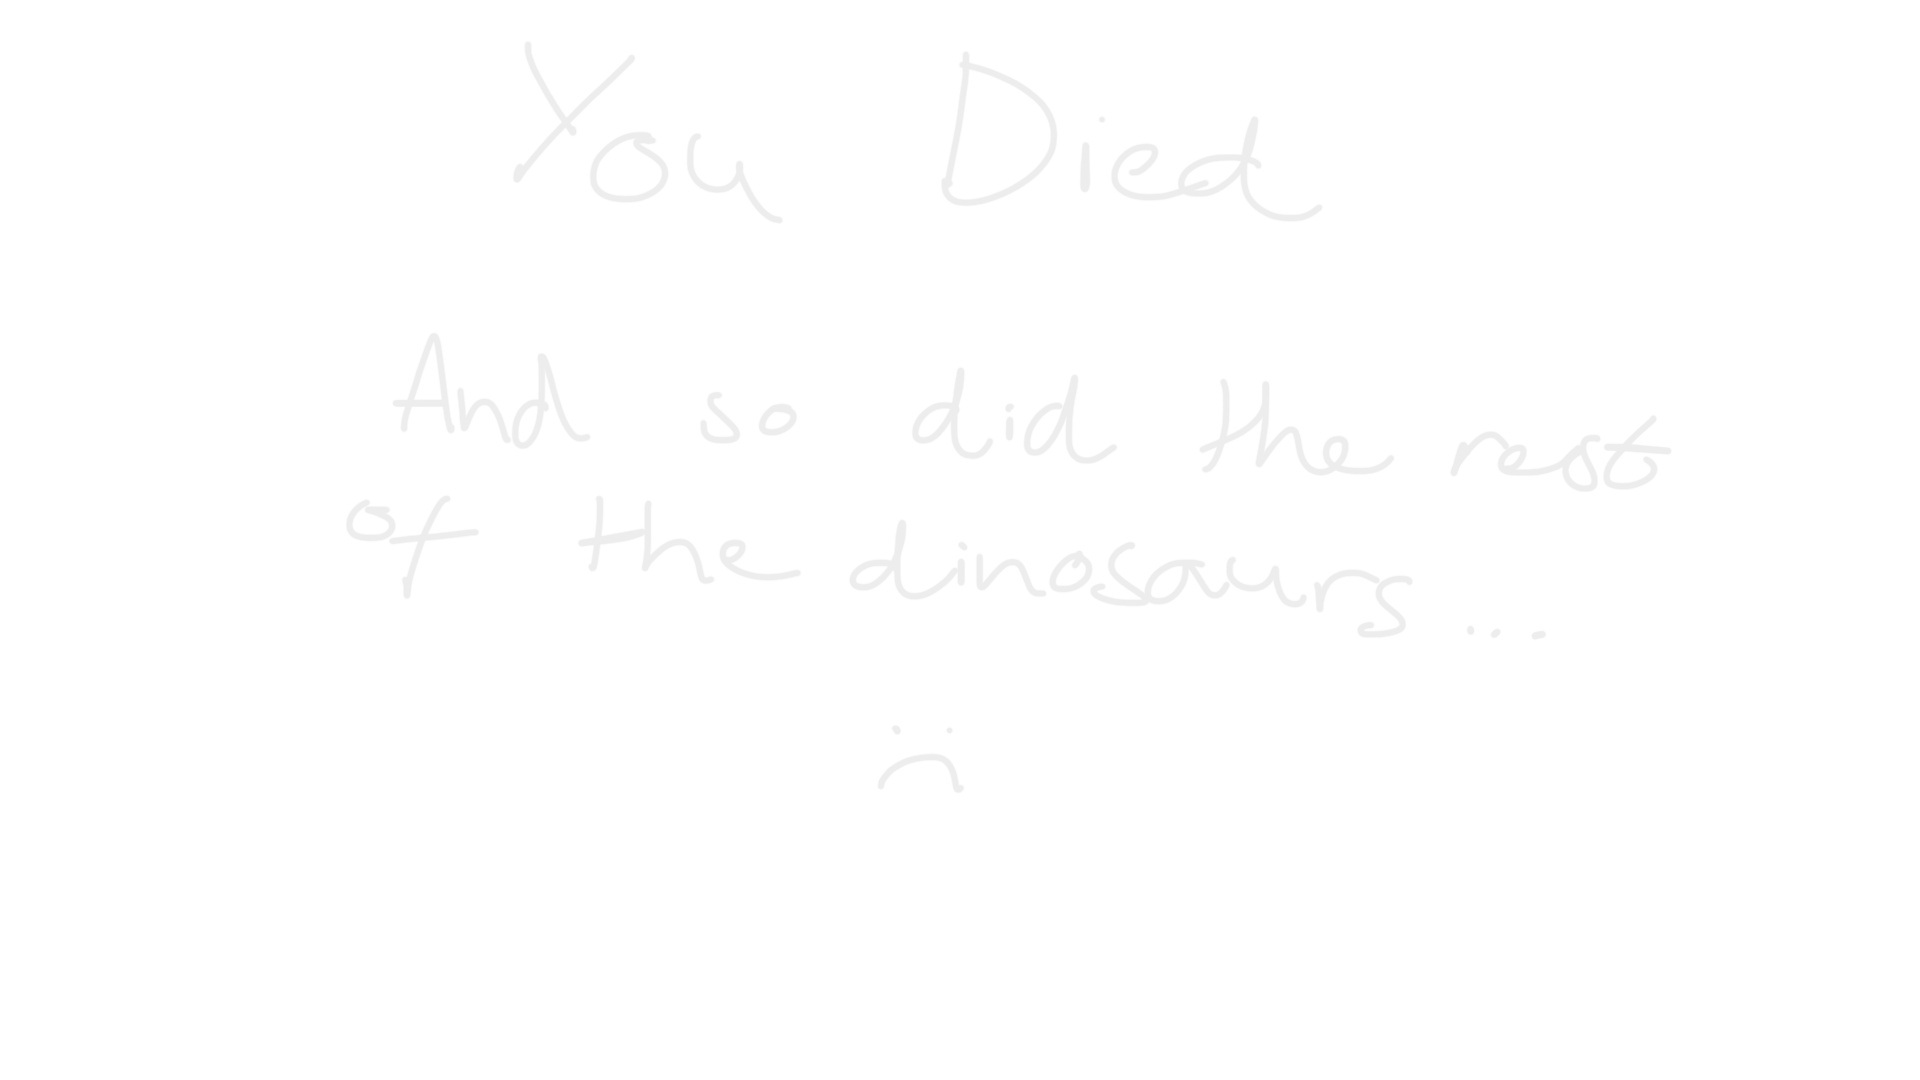 You Died
And so did the rest
of the dinosaurs...
:(